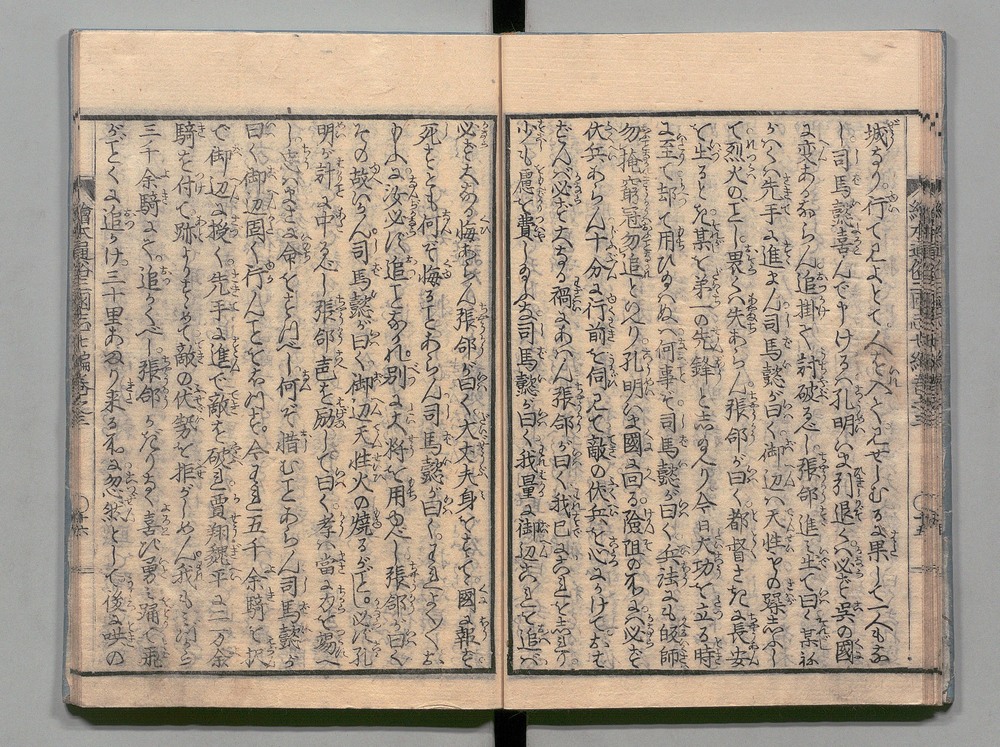 城なり行て見よとて人を入て見せしむるに果して一人もな
し司馬懿喜んで申けるハ孔明いま引退くハ必ず呉の國
に変あるならん追掛て討破るべし張郃進ミ出て曰く某ねが
ハくハ先手に進まん司馬懿が曰く御辺ハ天性その躁しふし
て烈火のごとし畏くハ失あらん張郃が曰く都督さきに長安
を出るとき某を第一の先鋒と志るへり今日大功を立る時
に至て却て用ひ玉ハぬハ何事ぞ司馬懿が曰く兵法にも帰師
勿掩窮冦勿追といへり孔明いま國に回る険阻の所にハ必ず
伏兵あらん十分に行前を伺ひ見て敵の伏兵を心にかけておか
ずんバ必ず大なる禍にあハん張郃が曰く我已に是を志れり
少も慮を費し玉ふな司馬懿が曰く我量るに御辺これを追ハゞ
必ず大なる悔あらん張郃が曰く大丈夫身をすてて國に報ず
死すとも何ぞ悔ることあらん司馬懿が曰く
もふに汝必ず追ことなかれ別に大将を用ゆべし張郃が曰く
その故いかん司馬懿が曰く御辺天性火の燒るがごとし必ず孔
明が計に中るべし張郃声を励して曰く孝ハ當に力を竭べ
し忠ハまさに命をすつべし何ぞ惜むことあらん司馬懿が
曰く御辺固く行んことを今これに五千余騎を択
で御辺に授く先手に進で敵を破れ賈翔魏平に二万余
騎を付て跡よりすすめて敵の伏勢を拒がしめん我もミづから
三千余騎にて追かくべし張郃かたりなく喜び勇ミ踊て飛
がごとくに追かけ三十里あまり来る所に忽然として後に哄の
繪本通俗三國志七編巻之三